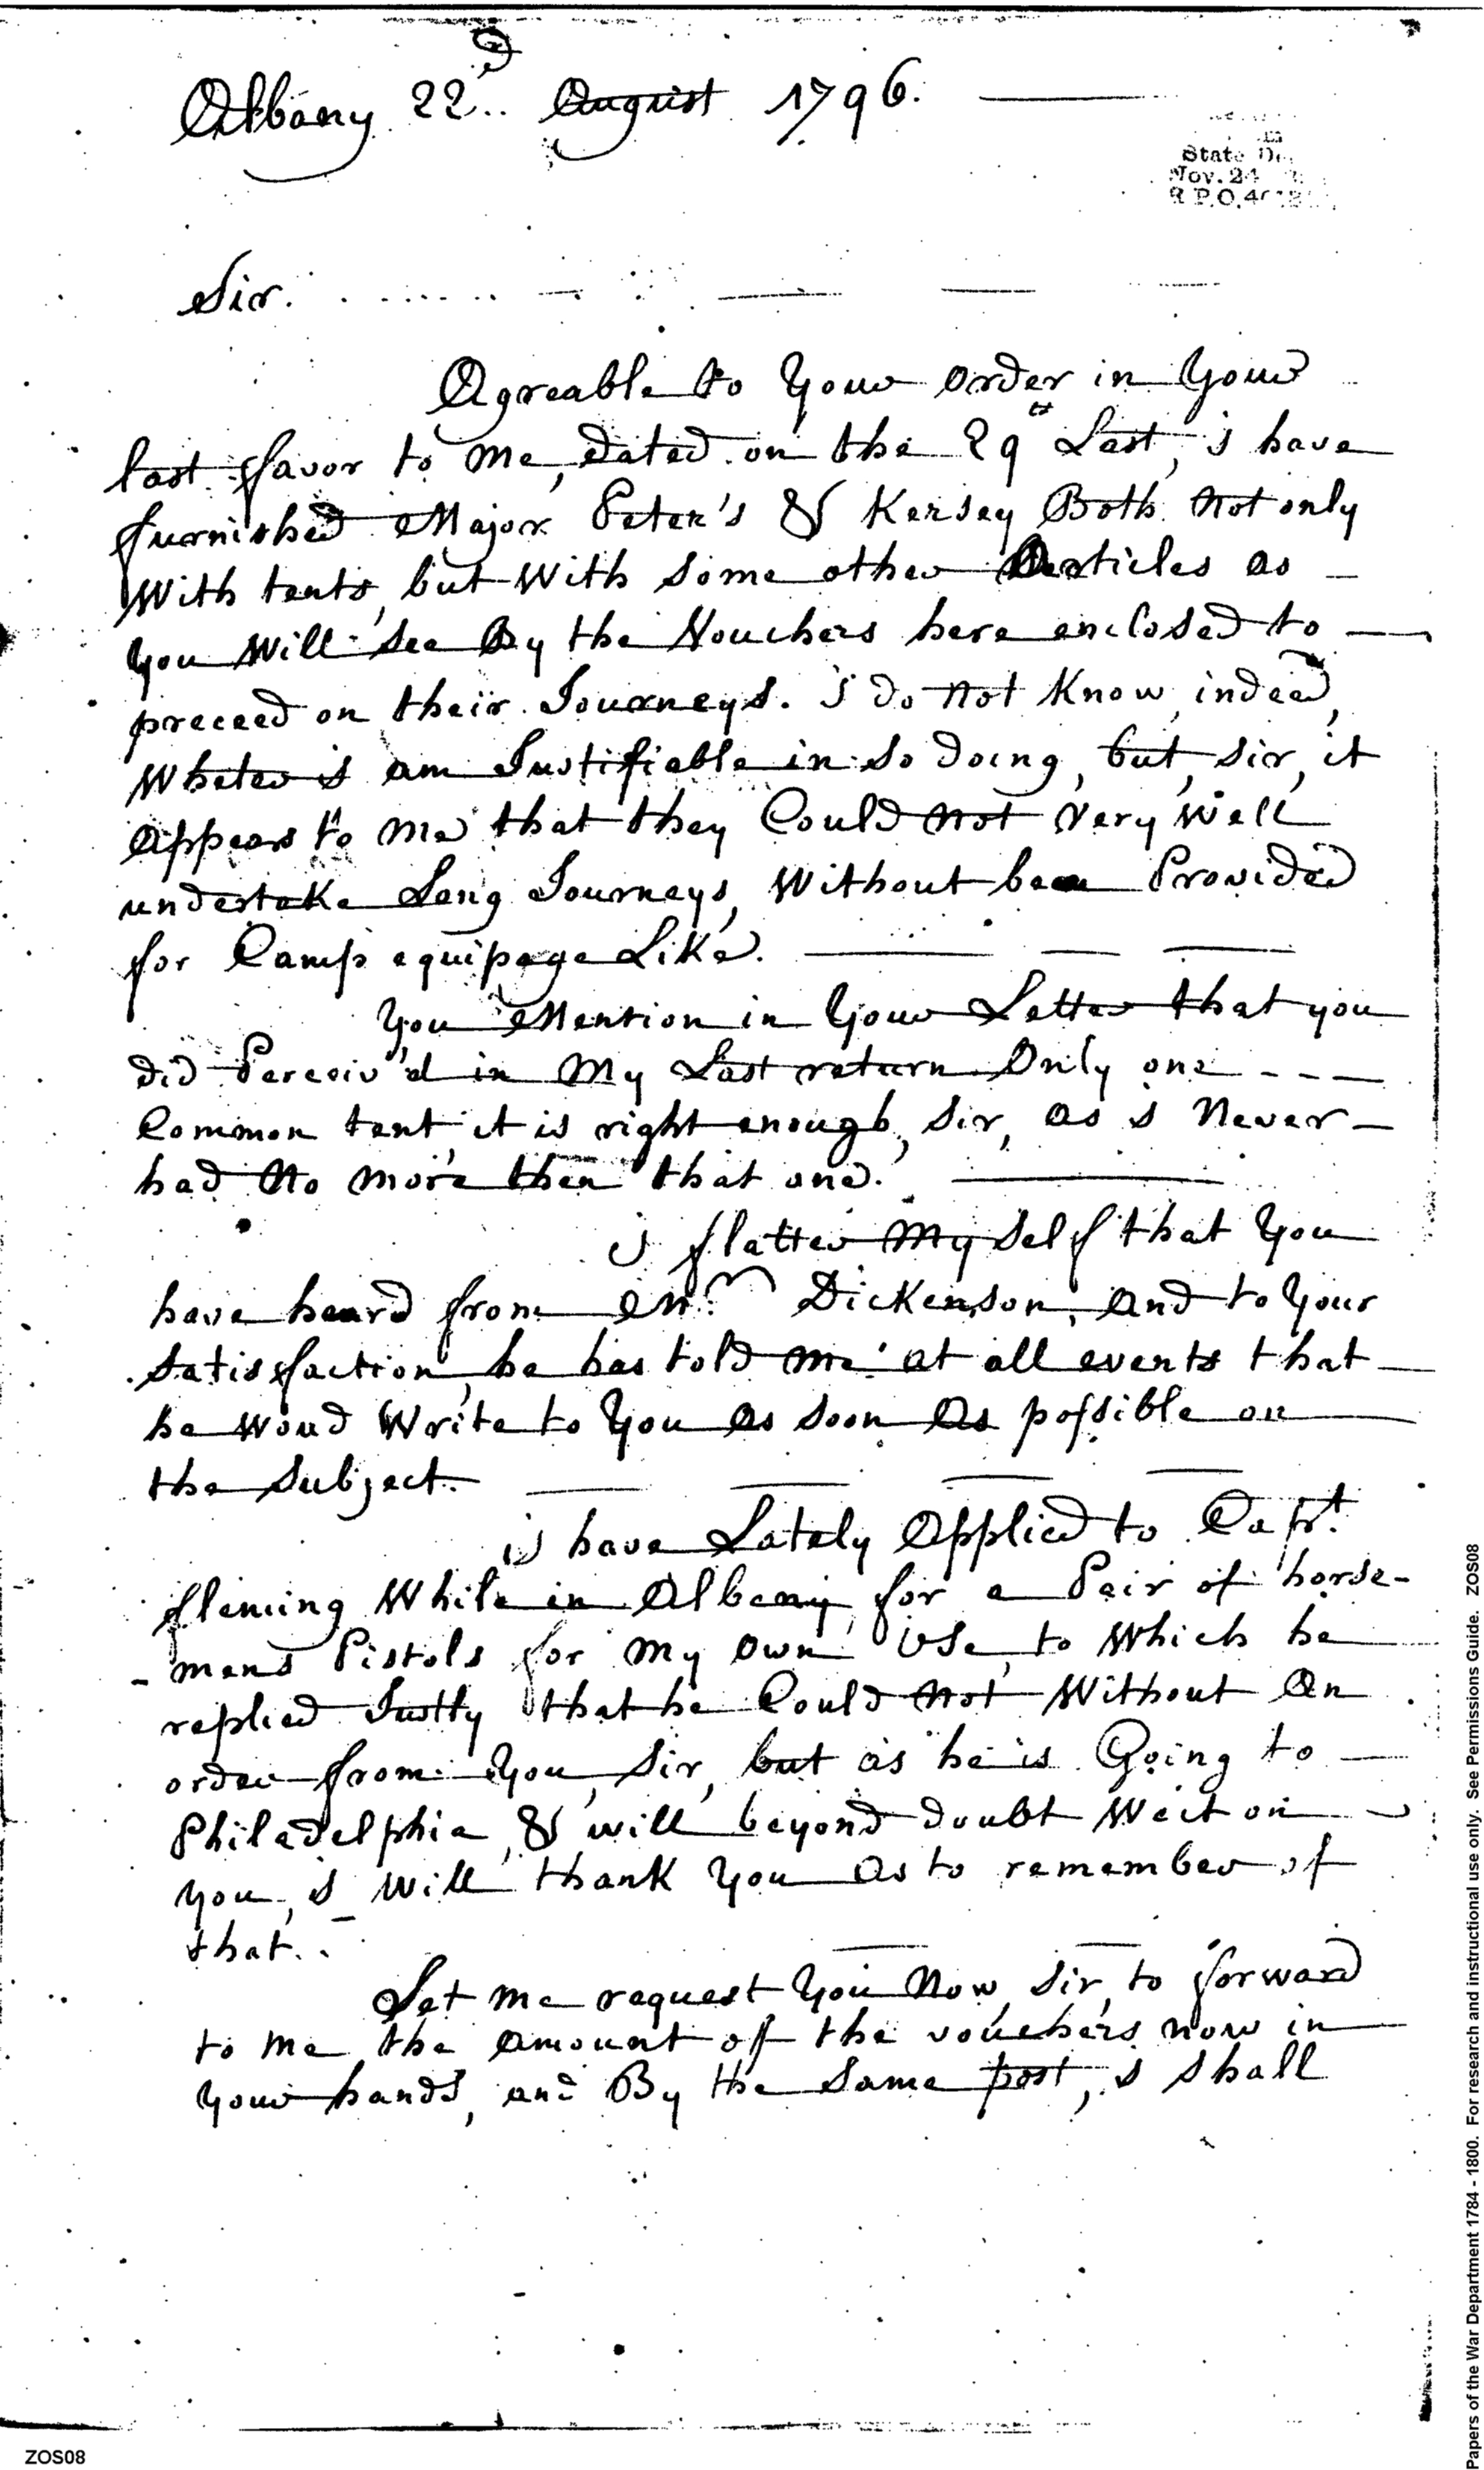 Albany 22d.. August 1796.
State De
Nov. 24
R.P.O. 4
Sir.
Agreable to Your order in Your
last favor to me, dated on the 29th Last, i have
furnished Major Peter's & Kersey Both Not only
With tents, but With Some other Articles as
you Will See By the Vouchers here enclosed to
preceed on their Journeys. i do not Know, indeed,
Wheter i am Justifiable in So doing, but, Sir, it
appears to me that they Could not Very Well
undertake Long Journeys, Without been Provided
for Camp equipage Like.
You Mention in Your Letter that you
did Perceiv'd in My Last return Only one
Common tent, it is right enough, Sir, as i Never
had No more then that one.
i flatter My Self that You
have heard from Mr. Dickenson, and to Your
Satisfaction, he has told me at all events that
he woud Write to You as Soon As possible on
the Subject.
i have Lately Applied to Capt.
fleming While in Albany for a Pair of horse-
-mens Pistols for my own Use, to Which he
replied Justly that he Could not Without An
order from You, Sir, but as he is Going to
Philadelphia, & will beyond doubt Weit on
you, i Will thank You As to remember of
that.
Let me request You Now, Sir, to forward
to me the amount of the vouchers now in
Your hands, and By the Same post, i Shall
ZOS08
Papers of the War Department 1784 - 1800. For research and instructional use only. See Permissions Guide. ZOS08